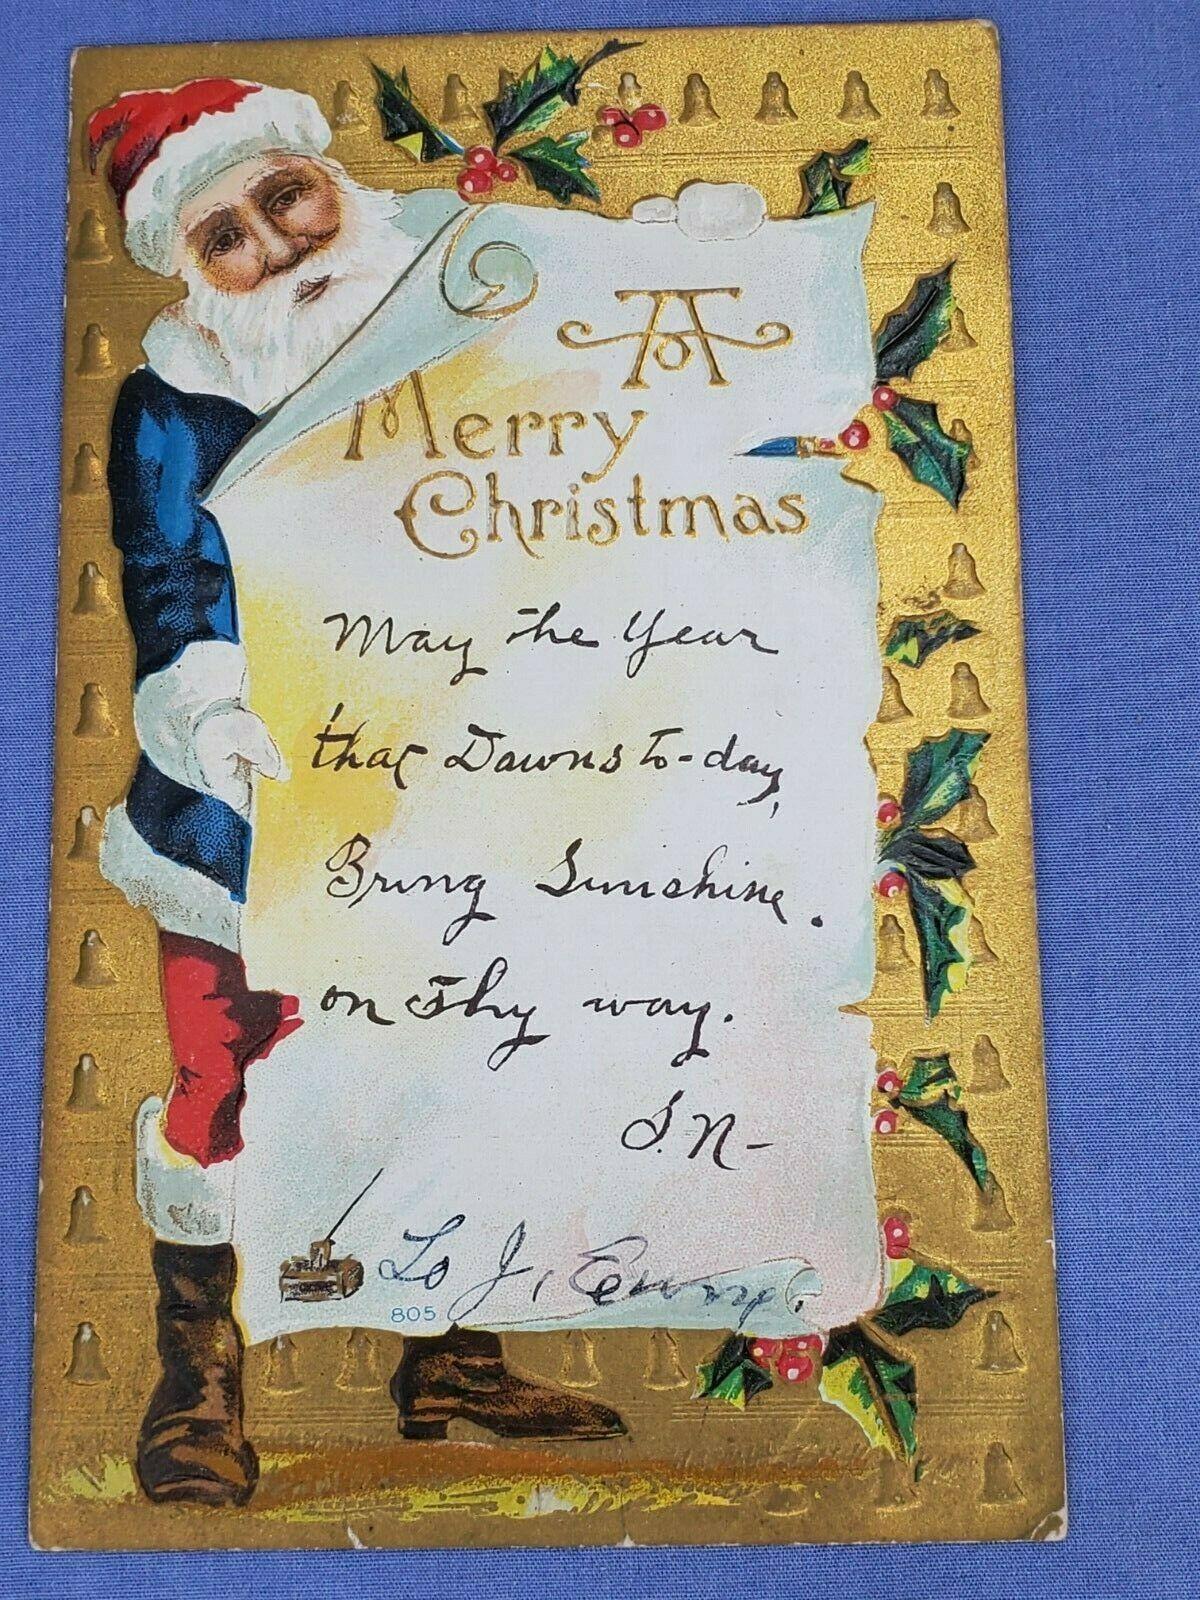 A
Merry
Christmas
May the Year
that Dawns to-day,
Bring Sunshine.
on Thy way.
S.N-
To J.
805